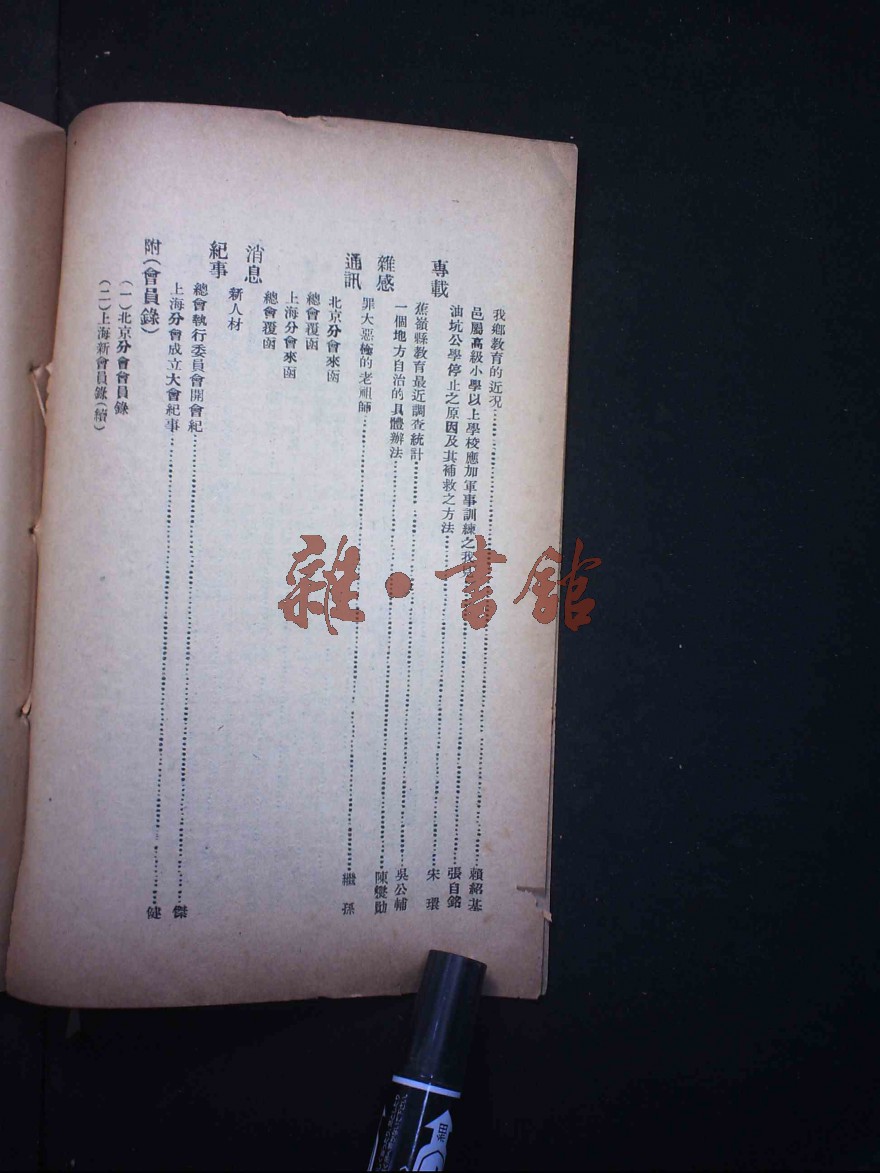 我鄉教育的近況……賴紹基
邑屬高級小學以上學校應加軍事訓練之我……張自銘
油坑公學停止之原因及其補救之方法……宋環
專載
蕉嶺縣教育最近調查統計……吳公輔
一個地方自治的具體辦法……陳燮勛
雜感
罪大惡極的老祖師……繼孫
通訊
北京分會來函
總會覆函
上海分會來函
總會覆函
消息
新人材
紀事
總會執行委員會開會紀……傑
上海分會成立大會紀事……健
附（會員錄）
（一）北京分會會員錄
（二）上海新會員錄（續）
雜·書館